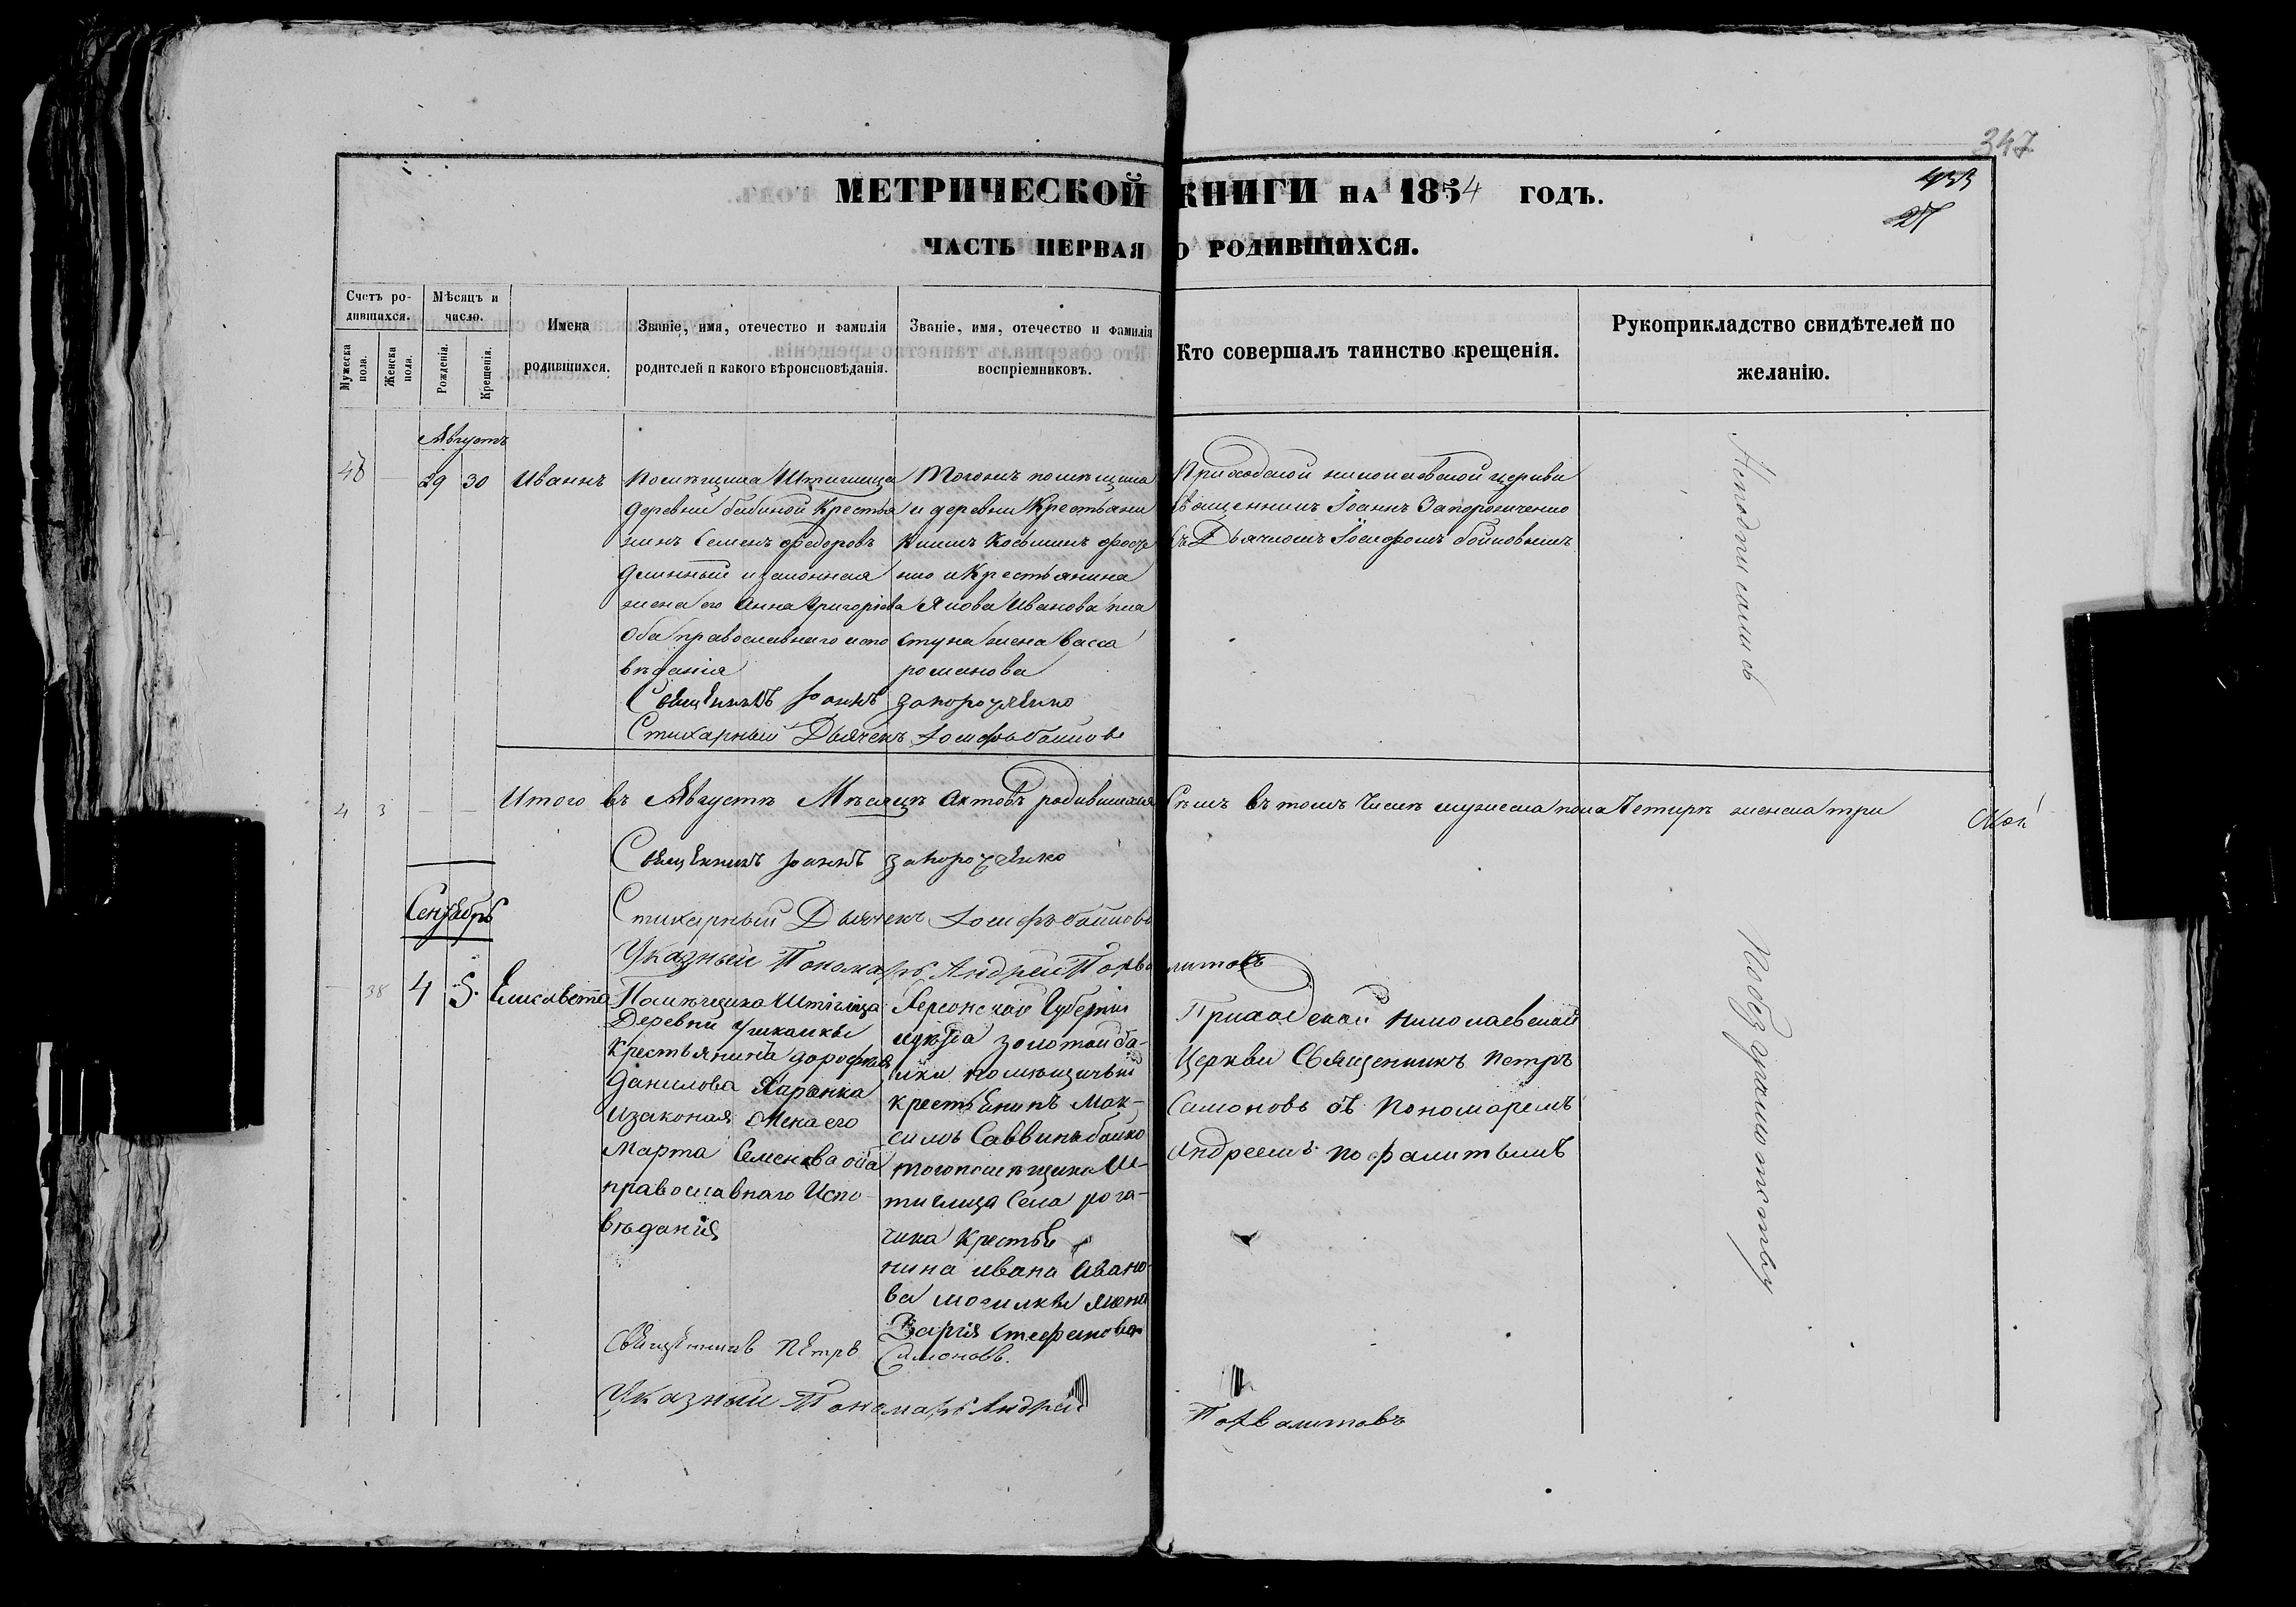 347
МЕТРИЧЕСКОЙ КНИГИ НА 1854 ГОДЪ.
ЧАСТЬ ПЕРВАЯ О РОДИВШИХСЯ.
Счетъ родившихся.
Мужеска пола.
Женска пола.
Мѣсяцъ и число.
Рожденія.
Крещенія.
Имена родившихся.
Званіе, имя, отечество и фамилія родителей и какого вѣроисповѣданія.
Званіе, имя, отечество и фамилія воспріемниковъ.
Кто совершалъ таинство крещенія.
Рукоприкладство свидѣтелей по желанію.
Августъ
48 29 30 Иваннъ
Помѣщика Штиглица
деревни бабиной Крестья
нинъ Семенъ Федоровъ
и законная
жена его Анна Григорiева
Оба православнаго испо
вѣданія
Тогожъ помѣщика
и деревни Крестьяни
Косьминъ
нко и Крестьянина
Якова Иванова
стуна жена Васса
романова
Приходской николаевской церкви
Священникъ Іоаннъ Запорожченко
съ Дьячкомъ Іосифомъ бойковымъ
Священникъ Іоаннъ запорожченко
Стихарный Дьячекъ Іосифъ бойковъ
4 3 Итого въ Августѣ Мѣсяцѣ Актовъ родившихся Сѣмъ въ томъ Числѣ мужеска пола Четыре женска три
Священникъ Іоаннъ запорожченко
Стихарный Дьячекъ Іосифъ бойковъ
Указный Пономарь Андрей Похвалитовъ
Сентябрь
38 4 5 Елисавета
Помѣщика Штиглица
Деревни Ушкалки
крестьянина дорофея
данилова Харенка
и законая Жена его
Марта Семенова оба
православнаго Испо-
вѣданія
Херсонской Губерніи
уѣзда золотой ба-
лки помѣщичьи
крестьянинъ Мак-
симъ Саввинъ бойко
того помѣщика Ш-
тиглица Села рога-
чика крестья
нина ивана Ивано
ва могилки жена
Дарія Стефанова
Приходской николаевской
Церкви Священникъ петръ
Самоновъ съ пономаремъ
Андреемъ пофалитымъ
Священникъ Петръ Самоновъ.
Указный Пономарь Андрей Похвалитовъ